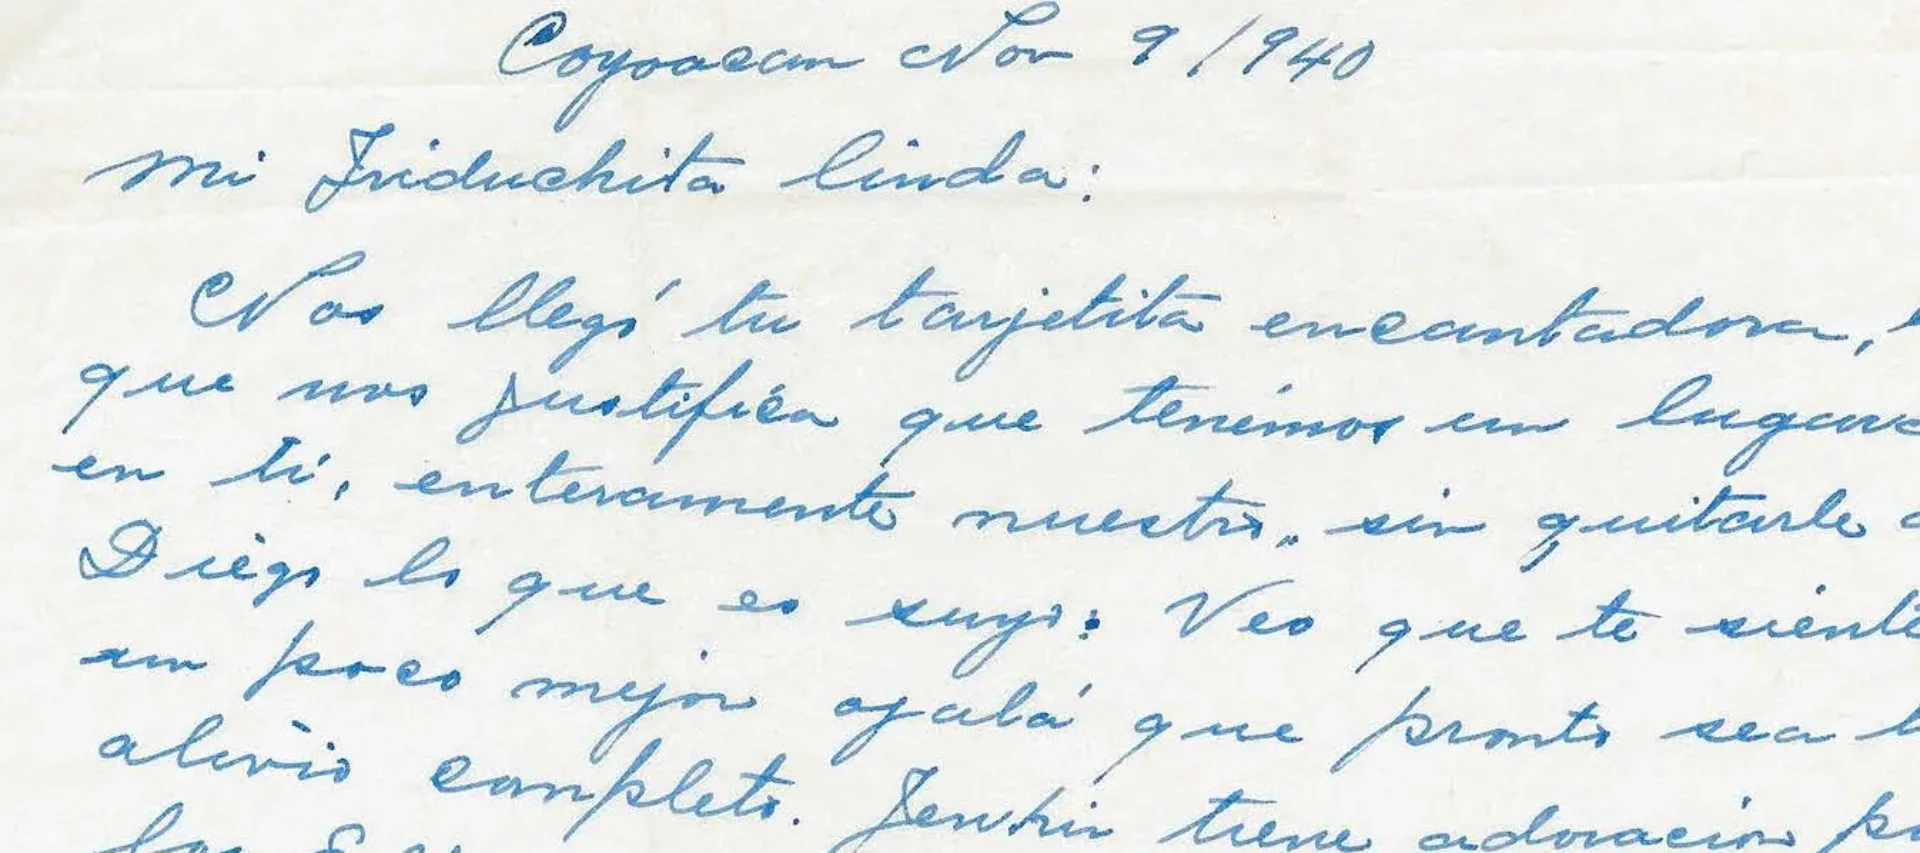 Coyoacan Nov 9/940
Mi Friduchita linda:
Nos llegó tu tarjetita encantadora,
que nos justifica que tenémos un
en ti, enteramente nuestro,, sin quitarle a
Diego lo que es suyo: Veo que te siente
un poco mejor ojalá que pronto sea
alivio completo. tiene adoracion